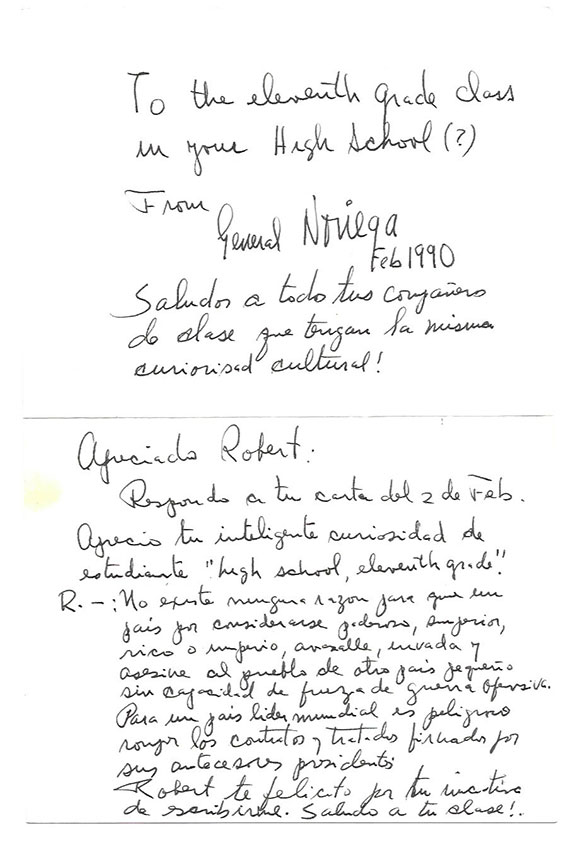 To the eleventh grade class
in your High School (?)
From
General Noriega
Feb 1990
Saludos a todo tus compañeros
de clase que tengan la misma
curiorisad cultural!
Apreciado Robert:
Respondo a tu carta del 2 de Feb.
Aprecio tu inteligente curiosidad de
estudiante "high school, eleventh grade".
R.-: No existe ninguna razon para que un
país por considerarse poderoso, superior,
rico o imperio, avasalle, invada y
asesine al pueblo de otro país pequeño
sin capacidad de fuerza de guerra ofensiva.
Para un país lider mundial es peligroso
romper los contratos y tratados firmados por
sus antecesores presidentes
Robert te felicito por tu iniciativa
de escribirme. Saludo a tu clase!.